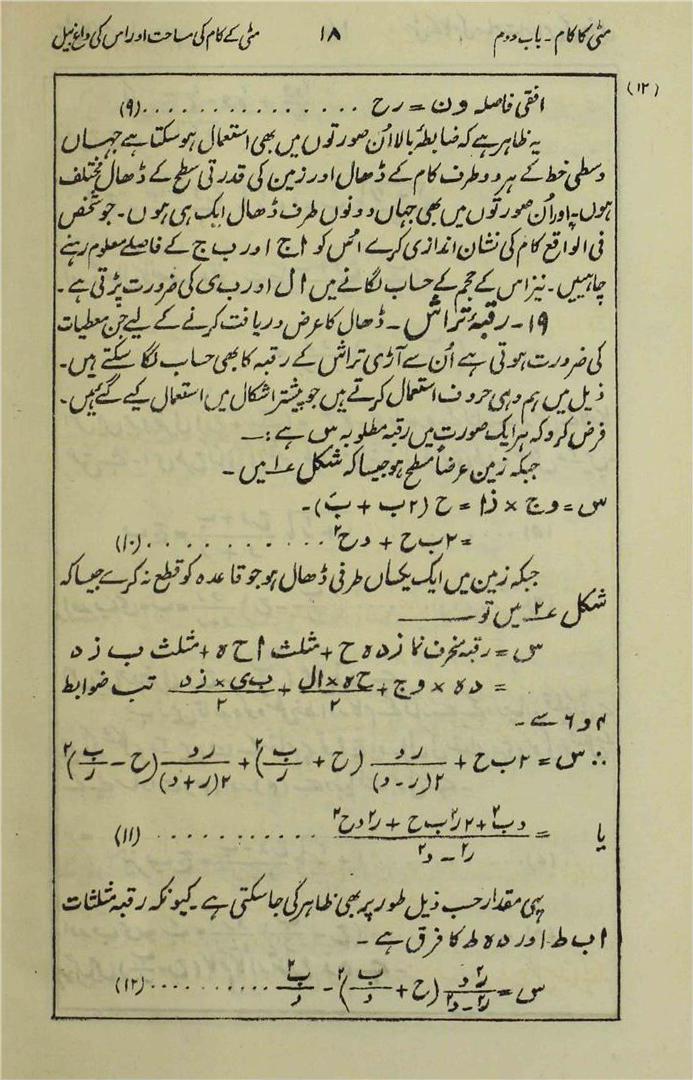 مٹی کا کام۔ باب دوم ۱۸ مٹی کے کام کی مساحت اور اس کی داغ بیل
(۱۲)
افقی فاصلہ و ن = ر ح . . . . . . . . . . . . . . . (۹)
یہ ظاہر ہے کہ ضابطۂ بالا اُن صورتوں میں بھی استعمال ہوسکتا ہے جہاں
وسطی خط کے ہر دو طرف کام کے ڈھال اور زمین کی قدرتی سطح کے ڈھال مختلف
ہوں۔ اور اُن صورتوں میں بھی جہاں دونوں طرف ڈھال ایک ہی ہوں۔ جو شخص
فی الواقع کام کی نشان اندازی کرے اُس کو ا ج اور ب ج کے فاصلے معلوم رہنے
چاہییں۔ نیز اس کے حجم کے حساب لگانے میں ا ل اور ب ی کی ضرورت پڑتی ہے۔
۱۹۔ رقبۂ تراش۔ ڈھال کا عرض دریافت کرنے کے لیے جن معطیات
کی ضرورت ہوتی ہے اُن سے آڑی تراش کے رقبہ کا بھی حساب لگا سکتے ہیں۔
ذیل میں ہم وہی حروف استعمال کرتے ہیں جو پیشتر اشکال میں استعمال کیے گئے ہیں۔
فرض کرو کہ ہر ایک صورت میں رقبہ مطلوبہ س ہے :۔
جبکہ زمین عرضاً مسطح ہو جیسا کہ شکل ۱ میں ۔
س = و ج × ذ ا = ح (۲ب + بَ)۔
= ۲ب ح + د ح^۲ . . . . . . . . . . . (۱۰)
جبکہ زمین میں ایک یکساں طرفی ڈھال ہو جو قاعدہ کو قطع نہ کرے جیسا کہ
شکل ۲ میں تو
س = رقبہ منحرف نما ز د ہ ح + مثلث ا ح ہ + مثلث ب ز د
= د ہ × و ج + ح ہ × ا ل / ۲ + ب ی × ز د / ۲ تب ضوابط
۴ و ۶ سے ۔
∴ س = ۲ب ح + ر د / ۲(ر - د) (ح + ب/ر)^۲ + ر د / ۲(ر + د) (ح - ب/ر)^۲
یا = د ب^۲ + ۲ر^۲ ب ح + ر^۲ د ح^۲ / ر^۲ - د^۲ . . . . . . . . . . (۱۱)
یہی مقدار حسب ذیل طور پر بھی ظاہر کی جاسکتی ہے۔ کیونکہ رقبہ مثلثات
ا ب ط اور د ہ ط کا فرق ہے ۔
س = ر^۲ د / ر^۲ - د^۲ (ح + ب/د)^۲ - ب^۲/د . . . . . . . . . . (۱۲)